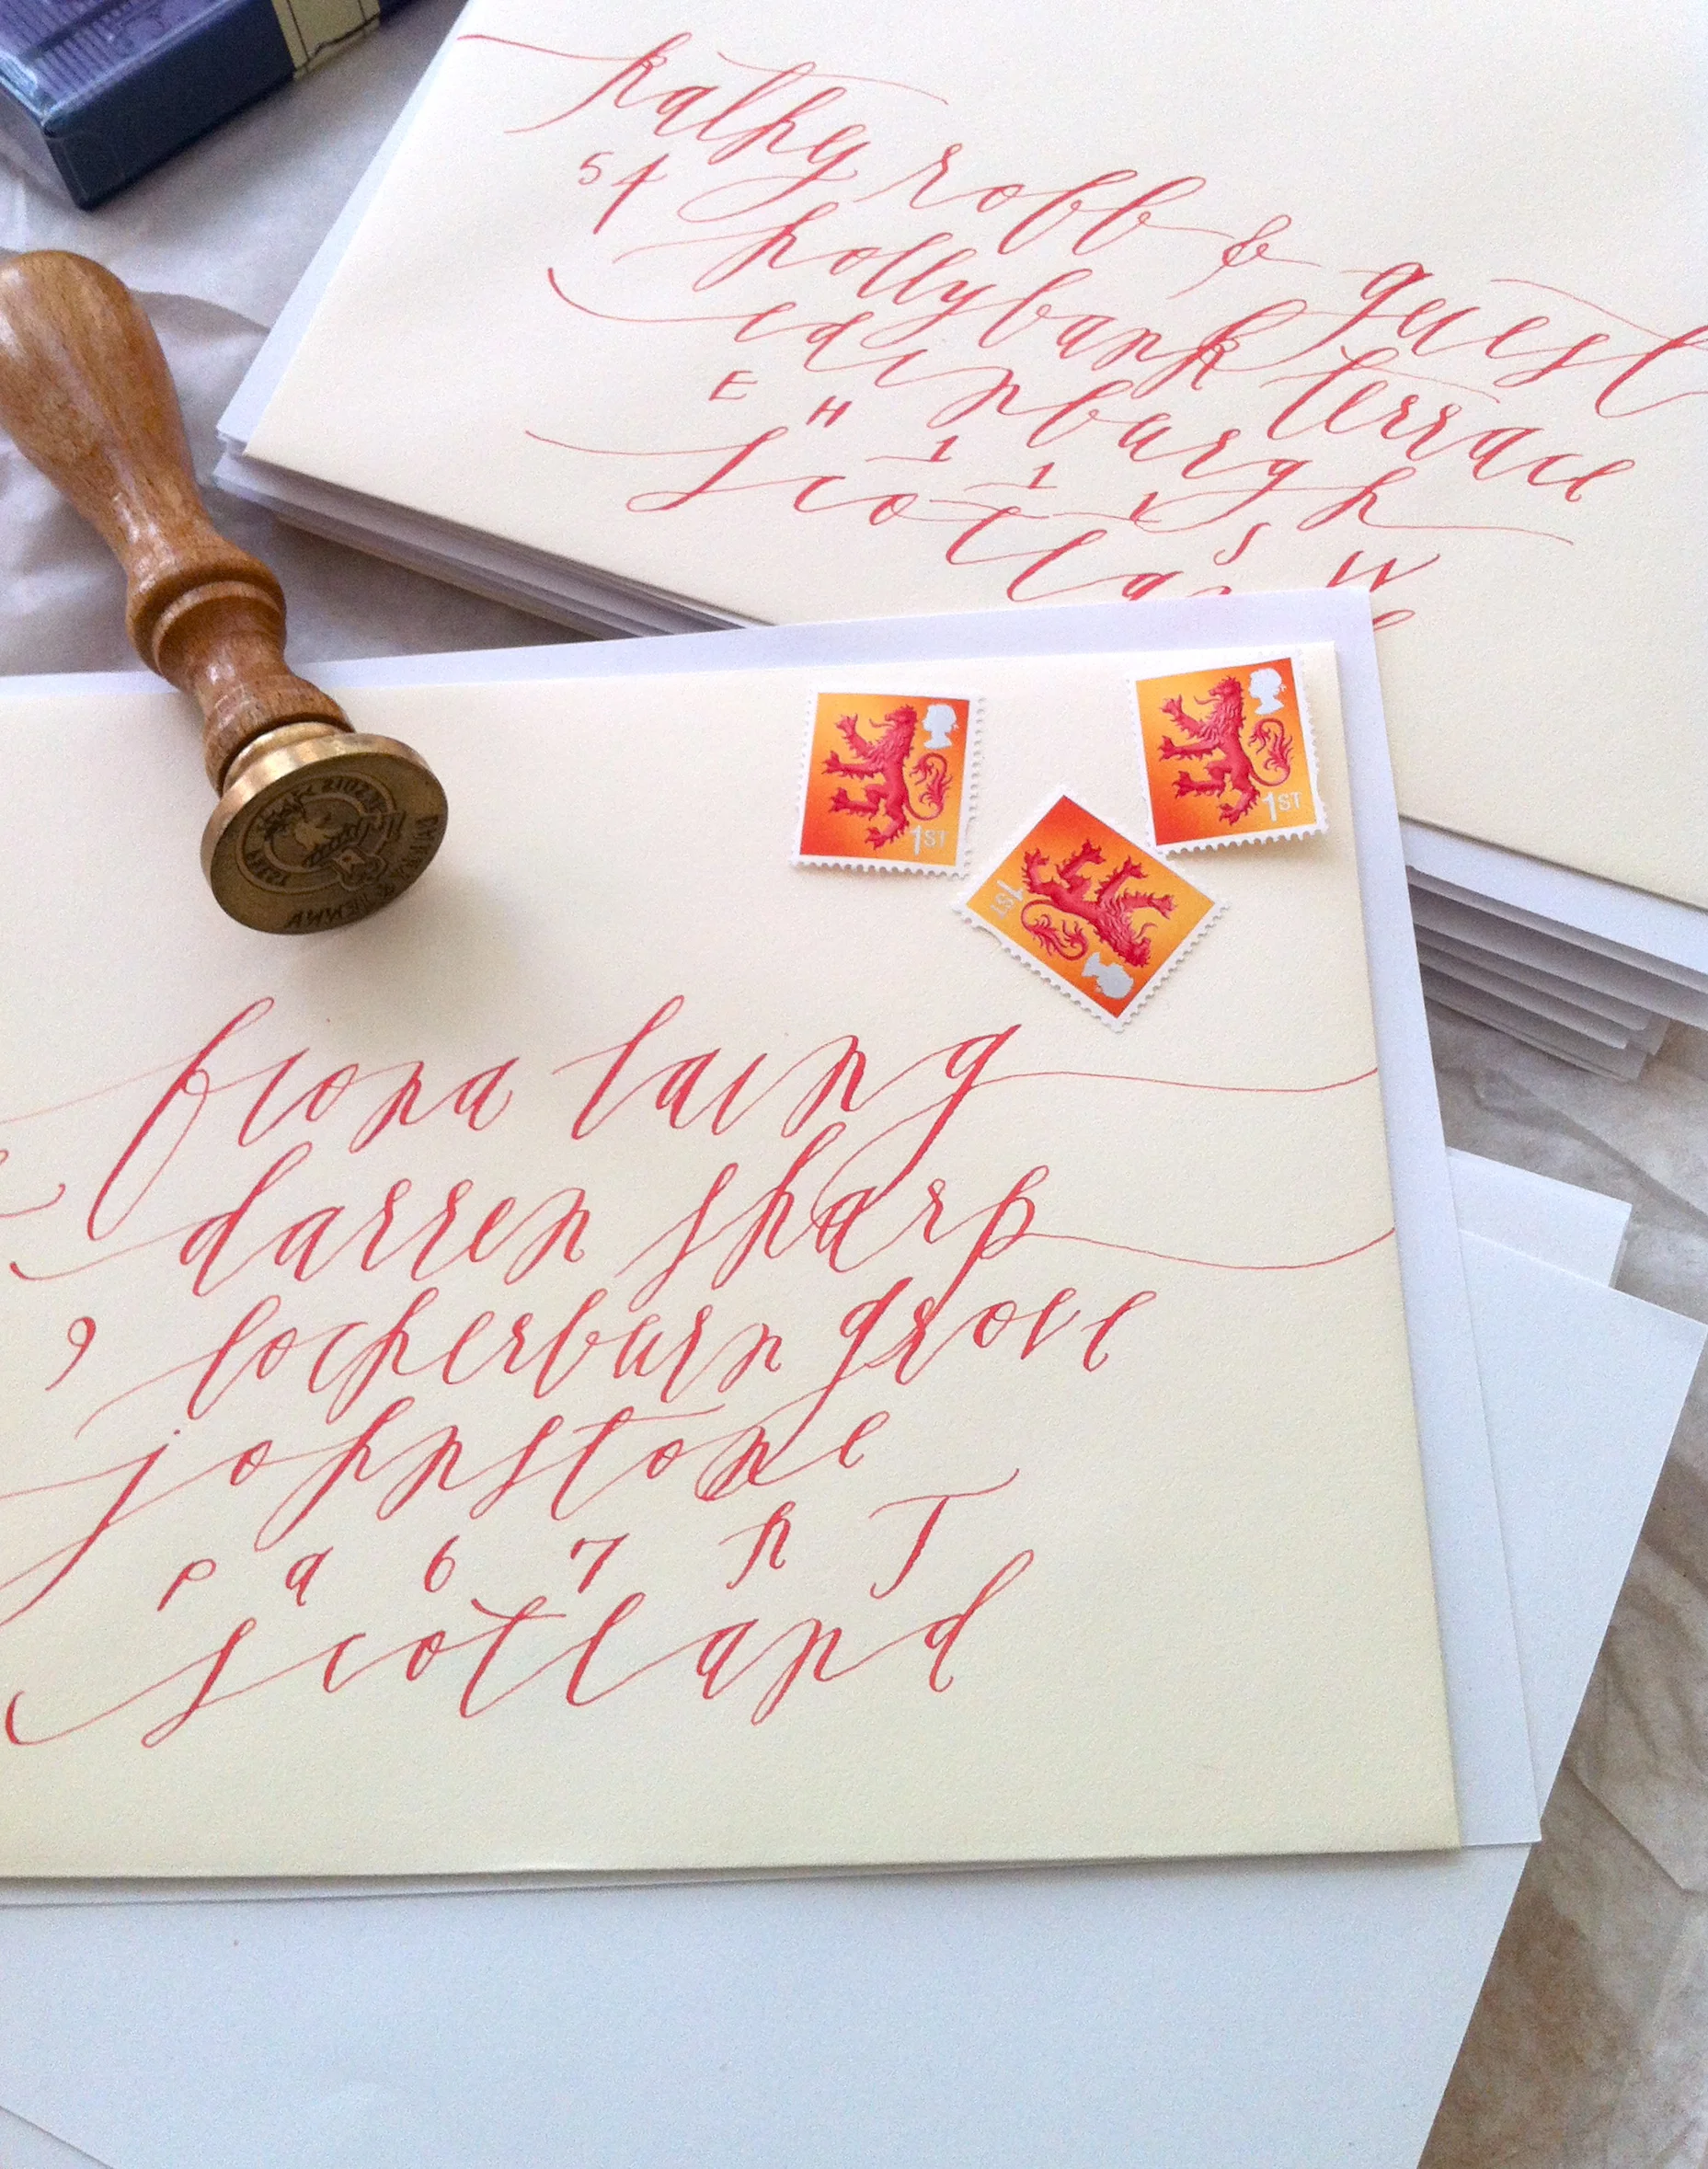 kathy robb & guest
54 hollybank terrace
edinburgh
E H 1 1 1 S W
1ST
1ST
1ST
fiona laing
darren sharp
9 locherburn grove
johnstone
p a 6 7 R T
scotland